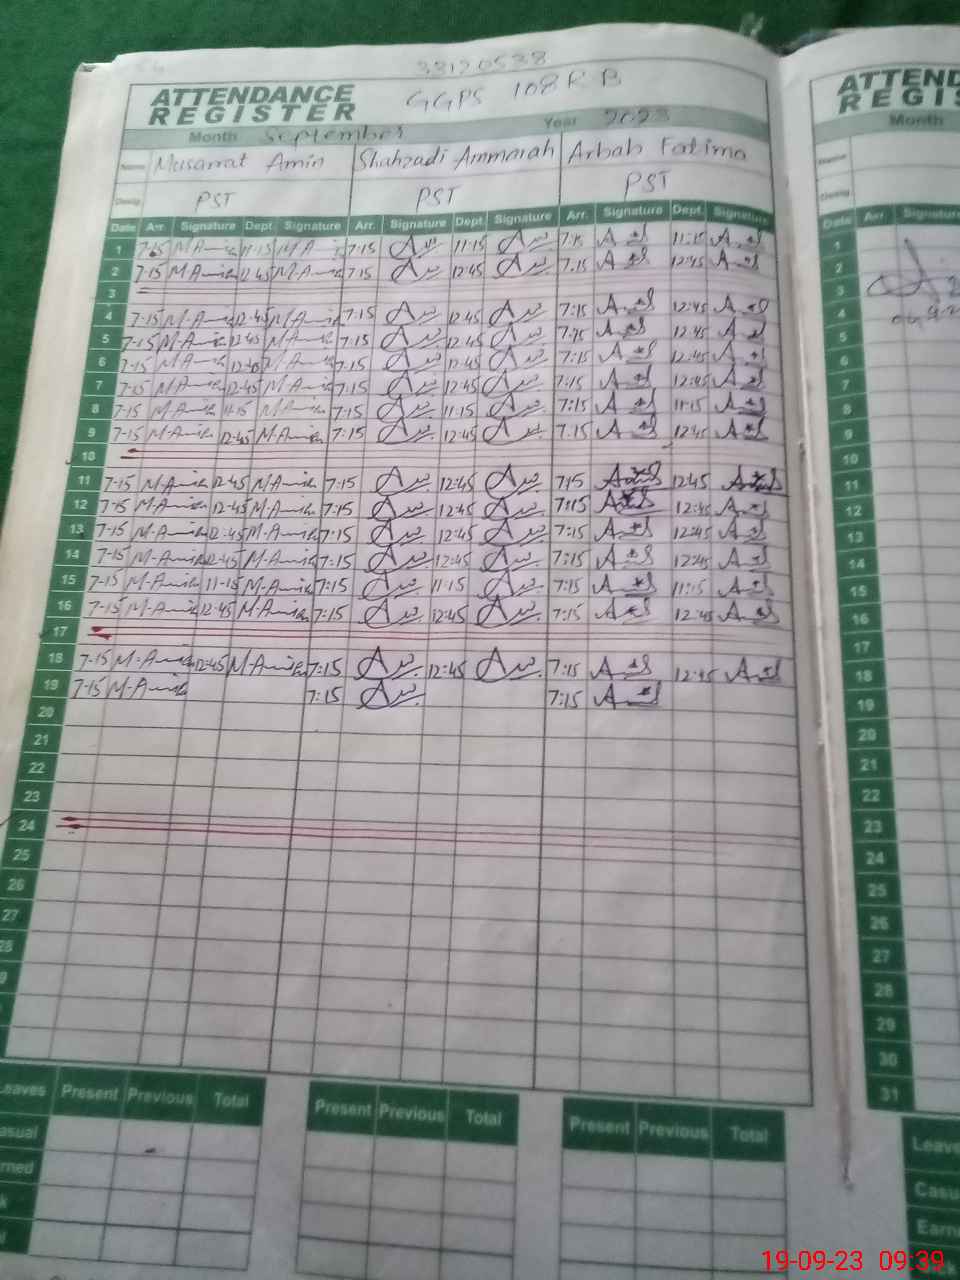 33120538
ATTENDANCE REGISTER GGPS 108 R B
Month September Year 2023
Name Musarrat Amin Shahzadi Ammarah Arbab Fatima
Desig. PST PST PST
Date Arr. Signature Dept. Signature Arr. Signature Dept. Signature Arr. Signature Dept. Signature
1 7-15 M-Amin 11-15 M-Amin 7:15 11:15 7:15 11:15
2 7-15 M-Amin 12-45 M-Amin 7:15 12:45 7:15 12:45
3
4 7-15 M-Amin 12-45 M-Amin 7:15 12:45 7:15 12:45
5 7-15 M-Amin 12-45 M-Amin 7:15 12:45 7:15 12:45
6 7-15 M-Amin 12-45 M-Amin 7:15 12:45 7:15 12:45
7 7-15 M-Amin 12-45 M-Amin 7:15 12:45 7:15 12:45
8 7-15 M-Amin 11-15 M-Amin 7:15 11:15 7:15 11:15
9 7-15 M-Amin 12-45 M-Amin 7:15 12:45 7:15 12:45
10
11 7-15 M-Amin 12-45 M-Amin 7:15 12:45 7:15 12:45
12 7-15 M-Amin 12-45 M-Amin 7:15 12:45 7:15 12:45
13 7-15 M-Amin 12-45 M-Amin 7:15 12:45 7:15 12:45
14 7-15 M-Amin 12-45 M-Amin 7:15 12:45 7:15 12:45
15 7-15 M-Amin 11-15 M-Amin 7:15 11:15 7:15 11:15
16 7-15 M-Amin 12-45 M-Amin 7:15 12:45 7:15 12:45
17
18 7-15 M-Amin 12-45 M-Amin 7:15 12:45 7:15 12:45
19 7-15 M-Amin 7:15 7:15
20
21
22
23
24
25
26
27
28
Leaves Present Previous Total Present Previous Total Present Previous Total
ATTEND
REGIS
Month
Name
Desig
Date Arr Signature
1
2
3
4
5
6
7
8
9
10
11
12
13
14
15
16
17
18
19
20
21
22
23
24
25
26
27
28
29
30
31
Leave
Casu
Earn
19-09-23 09:39